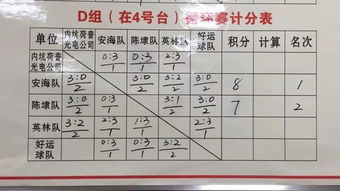 D组（在4号台）循环赛计分表
单位 内坑荷普光电公司 安海队 陈埭队 英林队 好运球队 积分 计算 名次
内坑荷普光电公司 0:3/1 0:3/1 2:3/1
安海队 3:0/2 3:0/2 3:2/2 3:0/2 8 1
陈埭队 3:0/2 0:3/1 3:1/2 3:0/2 7 2
英林队 3:2/2 2:3/1 1:3/1 2:3/1
好运球队 0:3/1 0:3/1 3:2/2